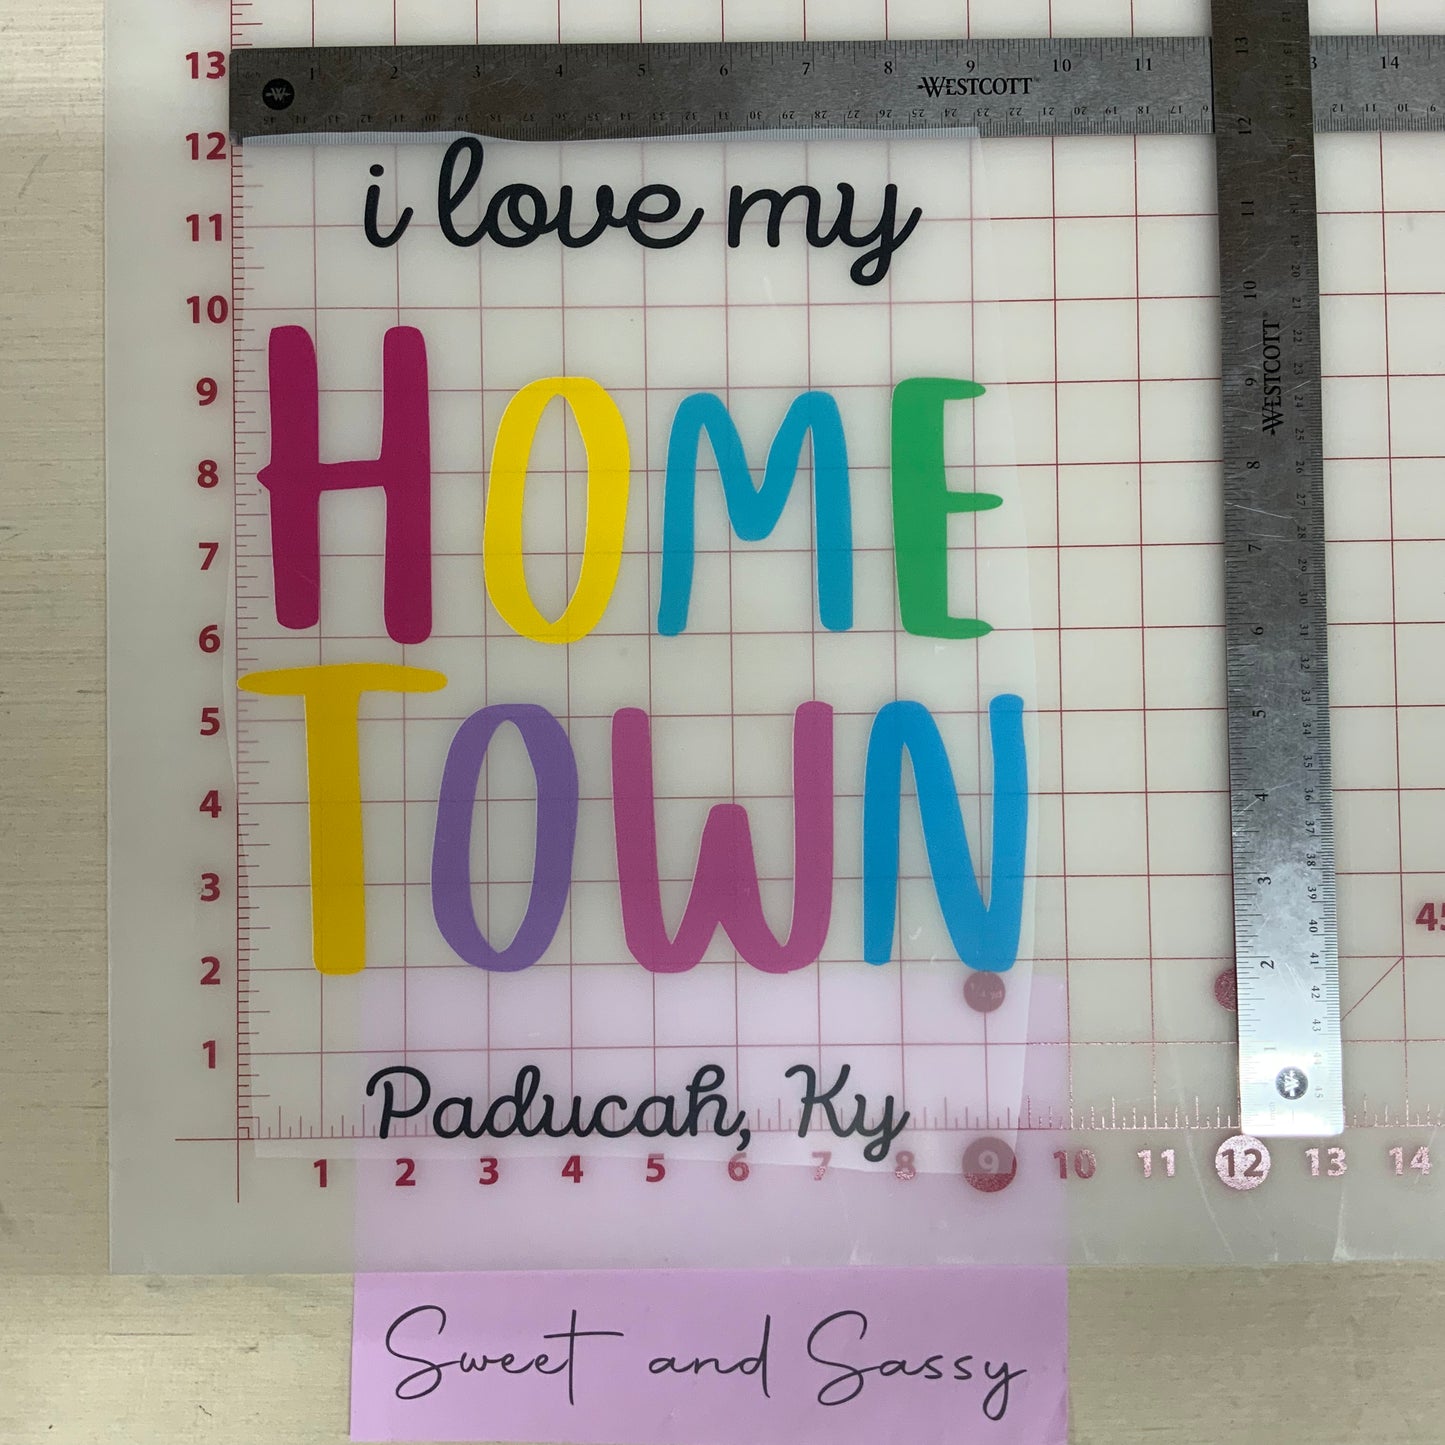 i love my
HOME
TOWN
Paducah, Ky
Sweet and Sassy
WESTCOTT
WESTCOTT
13
12
11
10
9
8
7
6
5
4
3
2
1
1 2 3 4 5 6 7 8 9 10 11 12 13 14
1 2 3 4 5 6 7 8 9 10 11 3 14
13
12
11
10
9
8
7
6
5
4
3
2
1
45